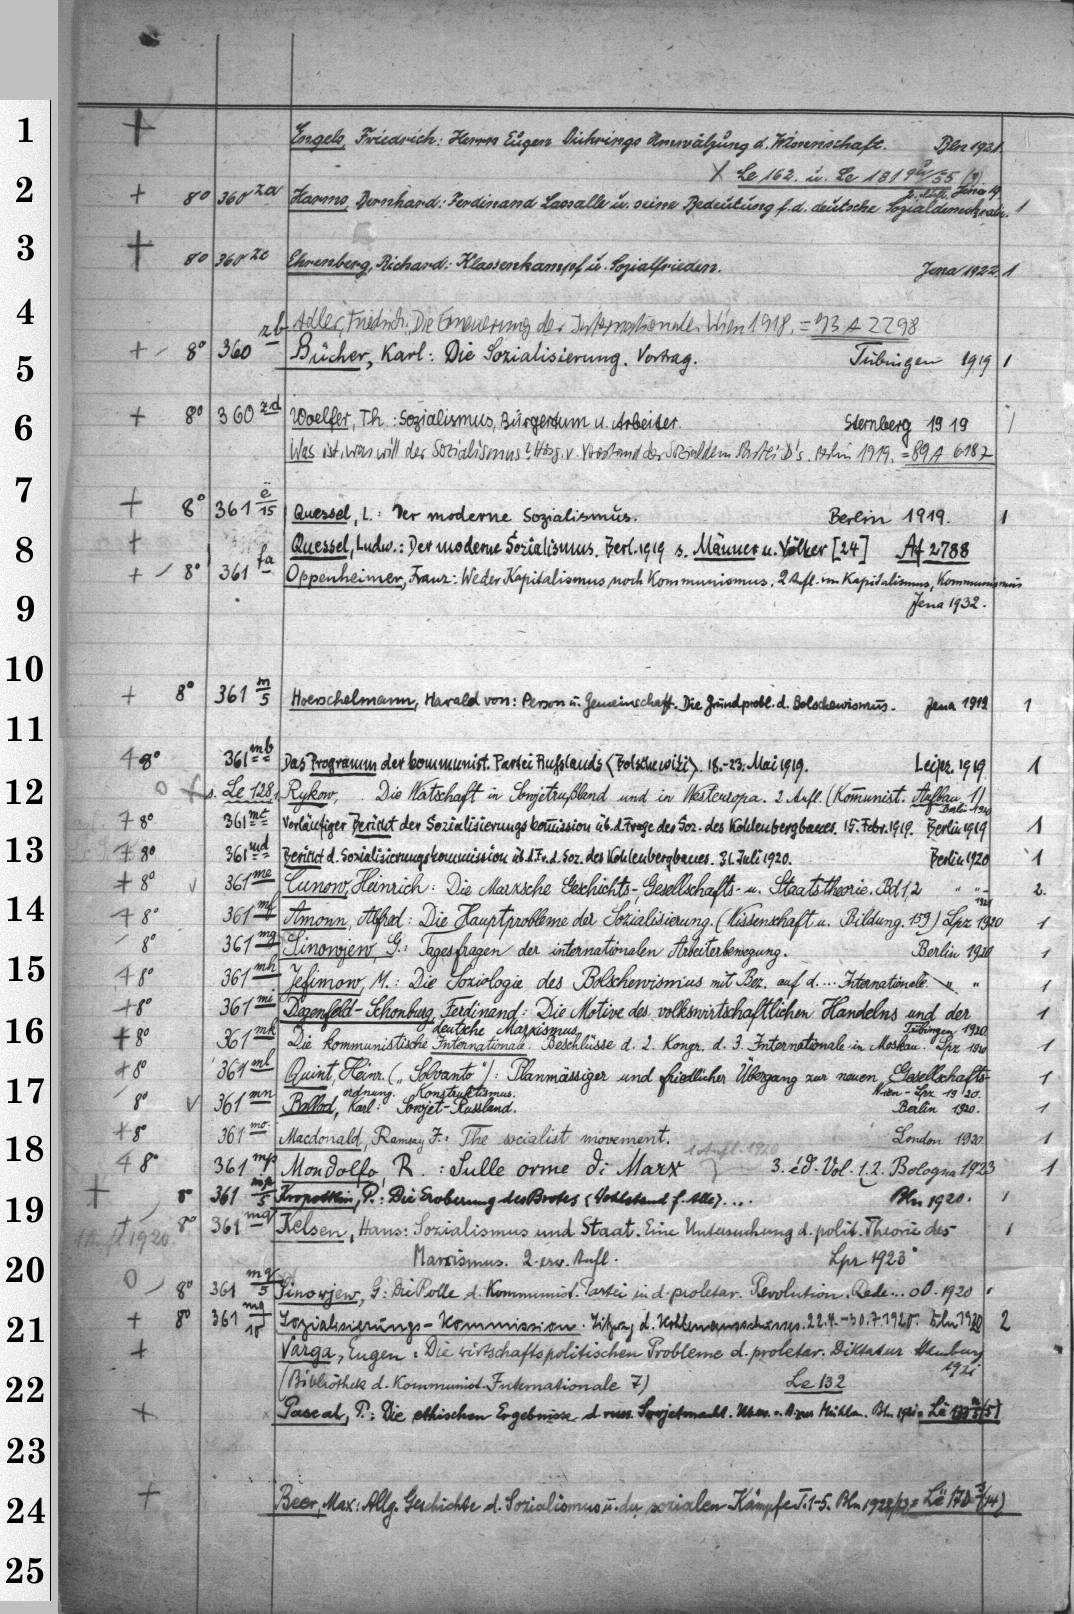 1
+ Engels, Friedrich: Herrn Eugen Dührings Umwälzung d. Wissenschaft. Bln 1921.
X Le 162. u. Le 181
2
2. Aufl. Jena 19
+ 8° 360 za Harms, Bernhard: Ferdinand Lassalle u. seine Bedeutung f. d. deutsche Sozialdemokratie. 1
3
+ 8° 360 zc Ehrenberg, Richard: Klassenkampf u. Sozialfrieden. Jena 1922. 1
4
Adler, Friedrich, Die Erneuerung der Internationale. Wien 1918. = 93 A 2298
5
+ 8° 360 zb Bücher, Karl: Die Sozialisierung. Vortrag. Tübingen 1919 1
6
+ 8° 360 zd Woelfer, Th.: Sozialismus, Bürgertum u. Arbeiter. Sternberg 1919 1
Was ist, was will der Sozialismus? Hrsg. v. Vorstand der Sozialdem. Partei D's. Berlin 1919. = 89 A 6187
7
+ 8° 361 e/15 Quessel, L.: Der moderne Sozialismus. Berlin 1919. 1
8
+ Quessel, Ludw.: Der moderne Sozialismus. Berl. 1919 s. Männer u. Völker [24] Af 2788
+ 8° 361 fa Oppenheimer, Franz: Weder Kapitalismus noch Kommunismus. 2 Aufl. von Kapitalismus, Kommunismus
9
Jena 1932.
10
+ 8° 361 m/5 Hoerschelmann, Harald von: Person u. Gemeinschaft. Die Grundprobl. d. Bolschewismus. Jena 1919 1
11
+ 8° 361 mb Das Programm der kommunist. Partei Rußlands (Bolschewiki). 18.-23. Mai 1919. Leipz. 1919. 1
12
o s. Le 128, Rykow, Die Wirtschaft in Sowjetrußland und in Westeuropa. 2. Aufl. (Kommunist. Aufbau, 1) Berlin 1920
+ 8° 361 mc Vorläufiger Bericht der Sozialisierungskommission üb. d. Frage der Soz. des Kohlenbergbaues. 15. Febr. 1919. Berlin 1919 1
13
+ 8° 361 md Bericht d. Sozialisierungskommission üb. d. Fr. d. Soz. des Kohlenbergbaues. 31. Juli 1920. Berlin 1920 1
+ 8° v 361 me Cunow, Heinrich: Die Marxsche Geschichts-, Gesellschafts- u. Staatstheorie. Bd 1,2 " " - 1921 2.
14
+ 8° 361 mf Amonn, Alfred: Die Hauptprobleme der Sozialisierung. (Wissenschaft u. Bildung. 159) Lpz 1920 1
8° 361 mg Sinowjew, G.: Tagesfragen der internationalen Arbeiterbewegung. Berlin 1920 1
15
+ 8° 361 mh Jefimow, M.: Die Soziologie des Bolschewismus mit Bez. auf d.... Internationale. " " 1
+ 8° 361 mi Degenfeld-Schonburg, Ferdinand: Die Motive des volkswirtschaftlichen Handelns und der 1
16
deutsche Marxismus. Tübingen 1920.
+ 8° 361 mk Die kommunistische Internationale. Beschlüsse d. 2. Kongr. d. 3. Internationale in Moskau. Lpz. 1920 1
+ 8° 361 ml Quint, Heinr. ("Solvanto"): Planmässiger und friedlicher Übergang zur neuen Gesellschafts- 1
17
ordnung. Konstruktismus. Wien - Lpz 1920.
8° v 361 mn Ballod, Karl: Sowjet-Russland. Berlin 1920. 1
18
+ 8° 361 mo Macdonald, Ramsay J.: The socialist movement. London 1920 1
1 Aufl. 1920
+ 8° 361 mp Mondolfo, R.: Sulle orme di Marx 3. éd. Vol. 1.2. Bologna 1923 1
19
+ 8° 361 mp/5 Kropotkin, P.: Die Eroberung des Brotes (Wohlstand f. Alle).... Bln 1920. 1
1920. 8° 361 mq Kelsen, Hans: Sozialismus und Staat. Eine Untersuchung d. polit. Theorie des 1
Marxismus. 2. erw. Aufl. Lpz 1923
20
O 8° 361 mq/5 Sinowjew, G: Die Rolle d. Kommunist. Partei in d. proletar. Revolution. Rede... oO. 1920 1
21
+ 8° 361 mq/10 Sozialisierungs-Kommission. Sitzg. d. Kohlenausschusses. 22.4.-30.7.1920. Bln. 1920 2
+ Varga, Eugen: Die wirtschaftspolitischen Probleme d. proletar. Diktatur Hamburg 1921
22
(Bibliothek d. Kommunist. Internationale 7) Le 132
+ Pascal, P.: Die ethischen Ergebnisse d. russ. Sowjetmacht. Übers. v. A. zur Mühlen. Bln 1921 =
23
24
+ Beer, Max: Allg. Geschichte d. Sozialismus u. der sozialen Kämpfe T. 1-5. Bln 1922/23 =
25